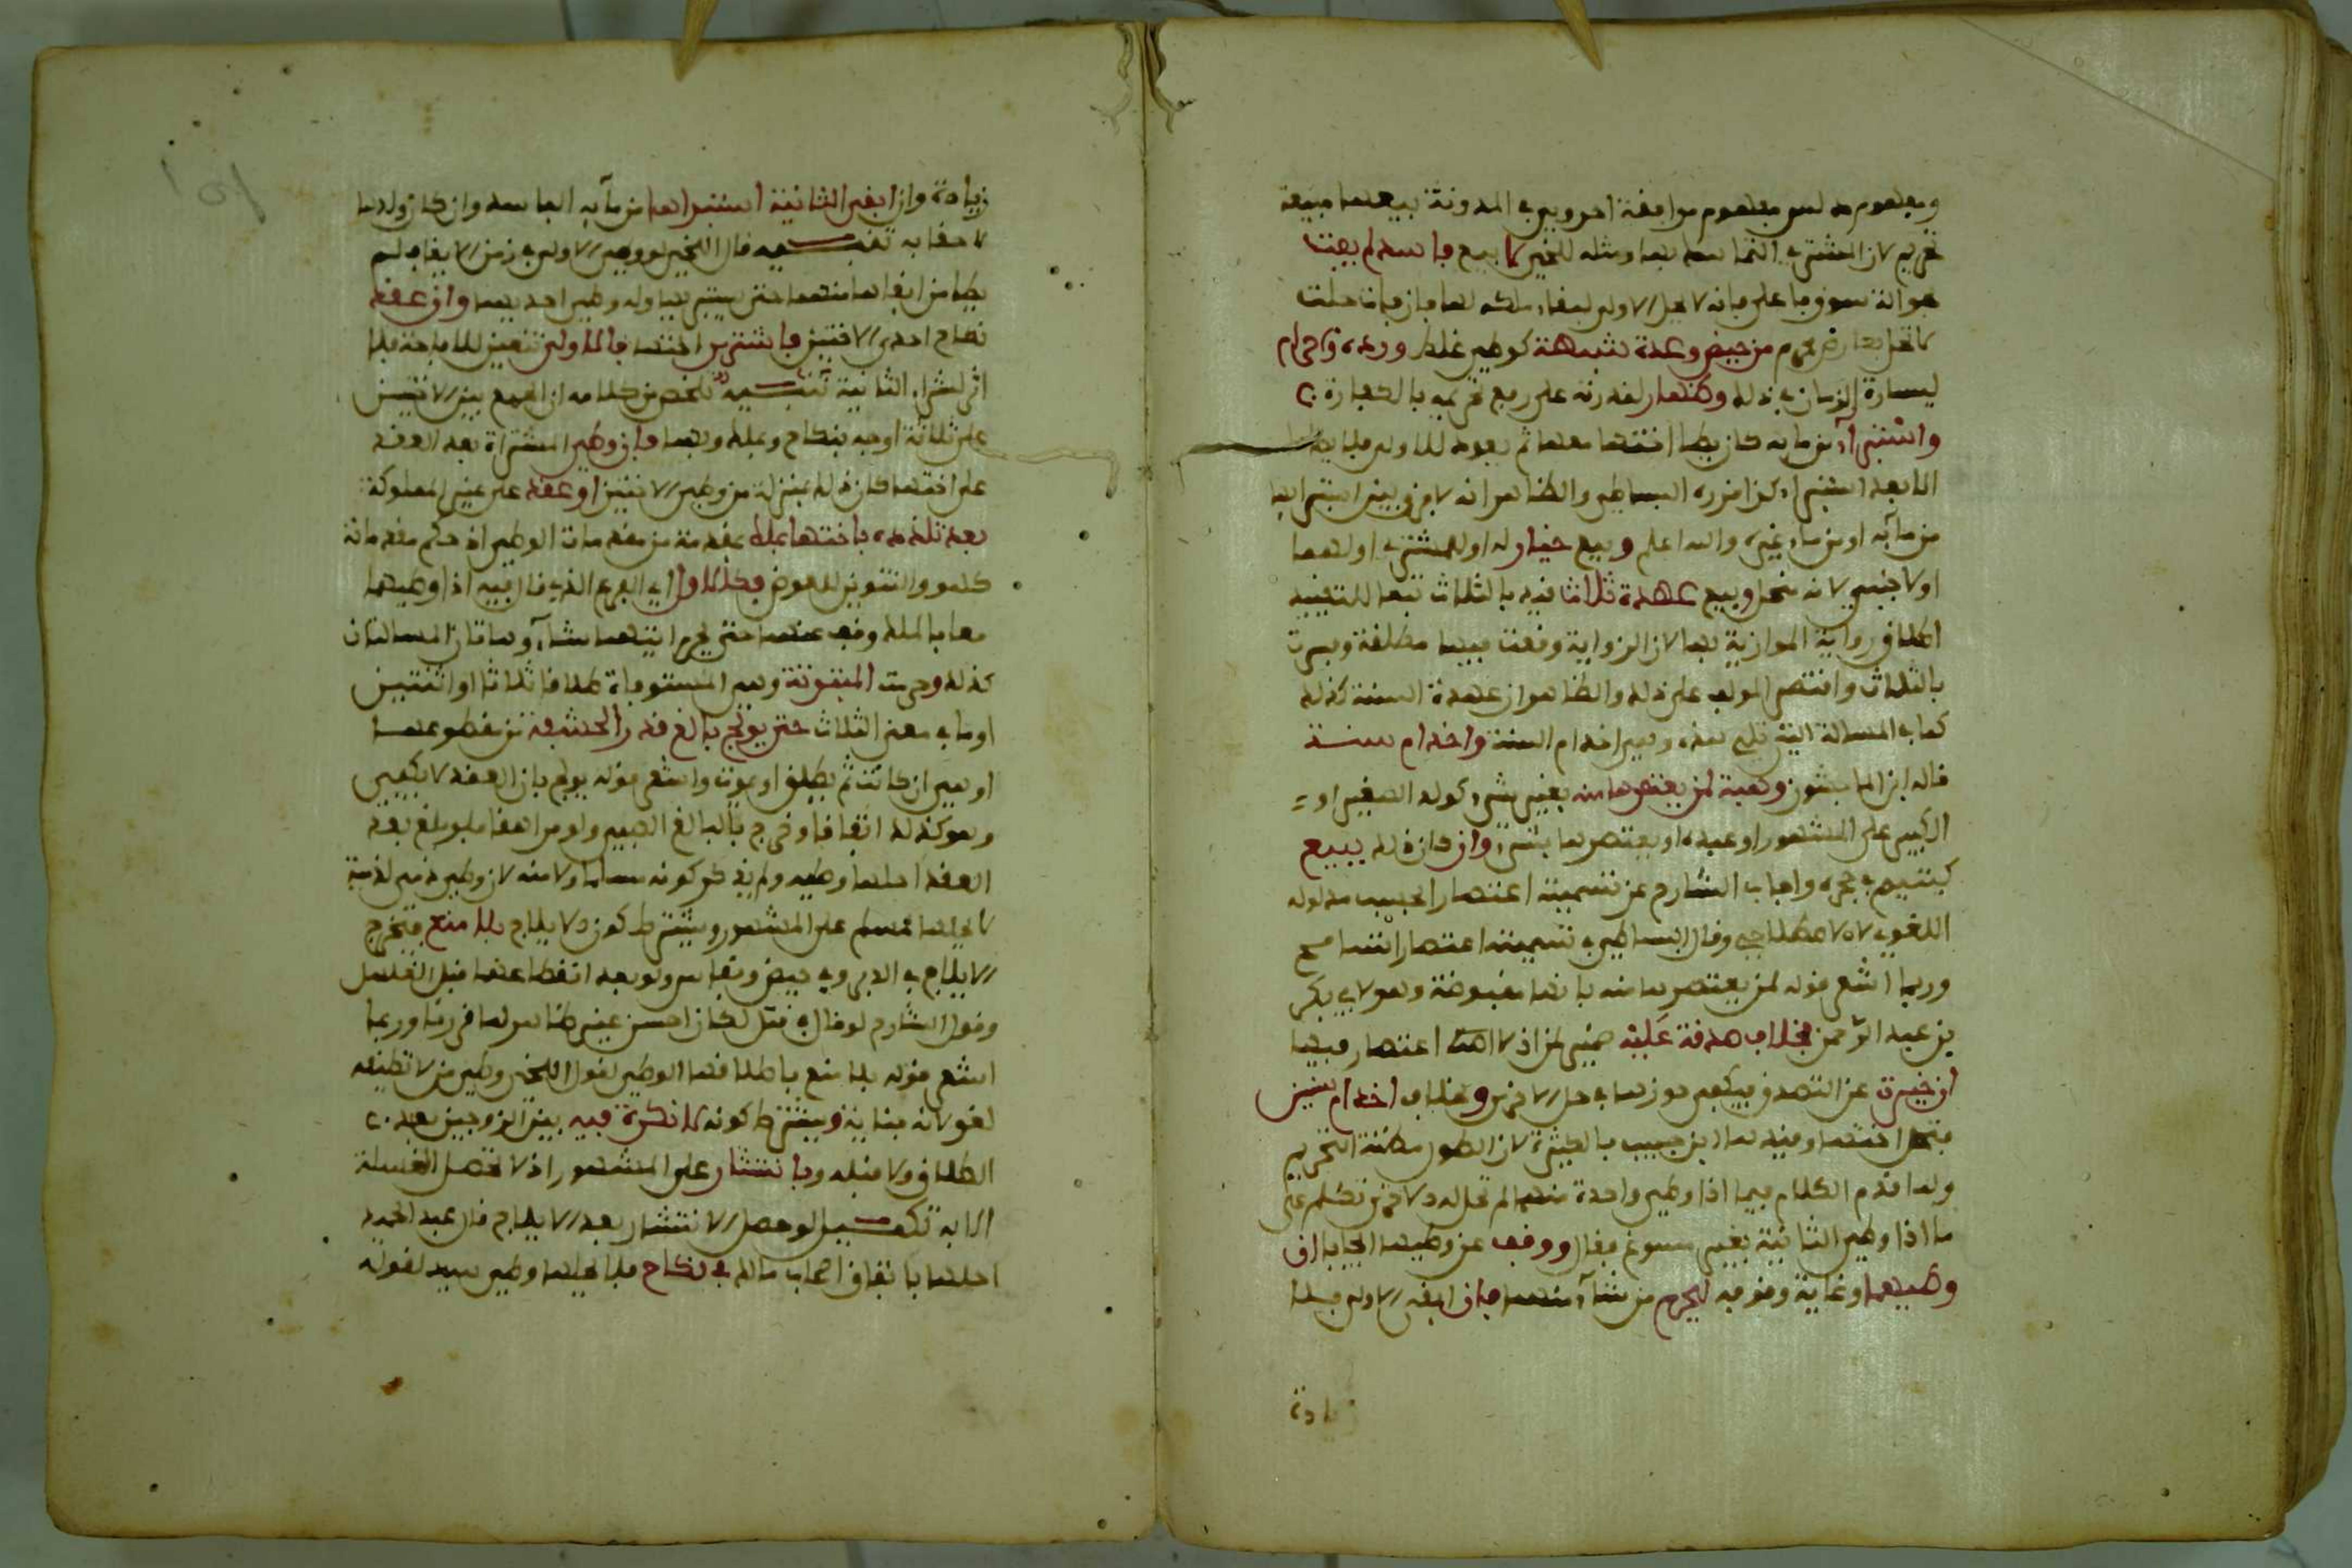 ومفهوم دلس مفهوم موافقة احروي في المدونة بيعها مبيعة
تحريم لان المشتري التماسك بها ومثله للخمي لا بيع فاسد لم يفت
حوالة سوق فاعلى فانه لا يحل الاولى لبقاء ملكه لها فان فات حلت
كاتحل بعارض محرم من حيض وعدة شبهة كوطي غلط وردة واحرام
ليسارة الزمان في ذلك وظهار لقدرته على رفع تحريمه بالكفارة
واستبراء من مائه كان يطأ اختها معها ثم يعود للاولى فلا يطأها
الا بعد استبراء كذا قرره البساطي والظاهر انه لا فرق بين استبرائها
من مائه او من ماء غيره والله اعلم وبيع خيار له او للمشتري او لهما
او لاجنبي لانه منحل وبيع عهدة ثلاث قيد بالثلاث تبعا لتقييد
اطلاق رواية الموازية بها لان الرواية وقعت فيها مطلقة وفسرت
بالثلاث واقتصر المولف على ذلك والظاهر ان عهدة السنة كذلك
كما في المسالة التي تلي هذه وهي اخدام السنة واخدام سنة
قاله ابن الماجشون وهبة لمن يعتصرها منه بغير شيء كولده الصغير او
الكبير على المشهور او عبده او يعتصرها بشيء وان كان ذلك ببيع
كيتيم في حجره واجاب الشارح عن تسميته اعتصارا بحسب مدلوله
اللغوي لا الاصطلاحي وقال البساطي في تسميته اعتصارا تسامح
وربما اشعر قوله لمن يعتصرها منه بانها مقبوضة وهو لابي بكر
بن عبد الرحمن بخلاف صدقة عليه ضمير لمن اذ لا اعتصار فيها
ان حيزت عن المتصدق فيكفي حوزها في حل الاخرى وبخلاف اخدام سنين
فتحل اختها وقيدها ابن حبيب بالكثيرة لان الطول مظنة التحريم
ولما قدم الكلام فيما اذا وطي واحدة منهما لم تحل له الاخرى تكلم على
ما اذا وطي الثانية بغير مسوغ فقال ووقف عن وطيهما ايجابا ان
وطيهما وغاية وقوفه ليحرم من شاء منهما فان ابقى الاولى فلا
زيادة
زيادة وان ابقى الثانية استبراها من مائه الفاسد وان كان ولدها
لاحقا به تنبيه قال اللخمي لو وطي الاولى في زمن الايقاف لم
يطا من ابقاها منهما حتى يستبريها وله وطي احديهما وان عقد
نكاح احدى الاختين فاشترى اختها فالاولى تتعين للاباحة فلا
اثر لشراء الثانية تنبيه تلخص من كلامه ان الجمع بين الاختين
على ثلاثة اوجه بنكاح وبملك وبهما فان وطي المشتراة بعد العقد
على اختها كان ذلك بمنزلة من وطي الاختين او عقد على غير المملوكة
بعد تلذذه باختها بملك عقده من مقدمات الوطي اذ حكم مقدماته
كهو والتنوين للعوض فكالاول اي الفرع الذي قال فيه اذا وطيهما
معا بالملك وقف عنهما حتى يحرم ايتهما شاء وهاتان المسالتان
كذلك وحرمت المبتوتة وهي المستوفاة طلاقا ثلاثا او اثنتين
او ما في معنى الثلاث حتى يولج بالغ قدر الحشفة ممن مقطوعها
او هي ان كانت ثم يطلق او يموت واشعر قوله يولج بان العقد لا يكفي
وهو كذلك اتفاقا وخرج بالبالغ الصبي ولو مراهقا فلو بلغ بعد
العقد احلها وطيه ولم يذكر كونه مسلما ولا منه لان وطي ذمي لذمية
لا يحلها لمسلم على المشهور ويشترط كون الايلاج بلا منع فتخرج
الايلاج في الدبر وفي حيض ونفاس ولو بعد انقطاعهما قبل الغسل
وقول الشارح لو قال في قبل لكان احسن غير ظاهر لما قررنا وربما
اشعر قوله بلا منع باطلاقها الوطي لقول اللخمي وطي من لا تطيقه
لغو لانه جناية ويشترط كونه لا نكرة فيه بين الزوجين بعد
الطلاق ولا قبله وبانتشار على المشهور اذ لا تحصل العسيلة
الا به تكميل لو حصل الانتشار بعد الايلاج قال عبد الحميد
احلها باتفاق اصحاب مالك في نكاح فلا يحلها وطي سيد لقوله